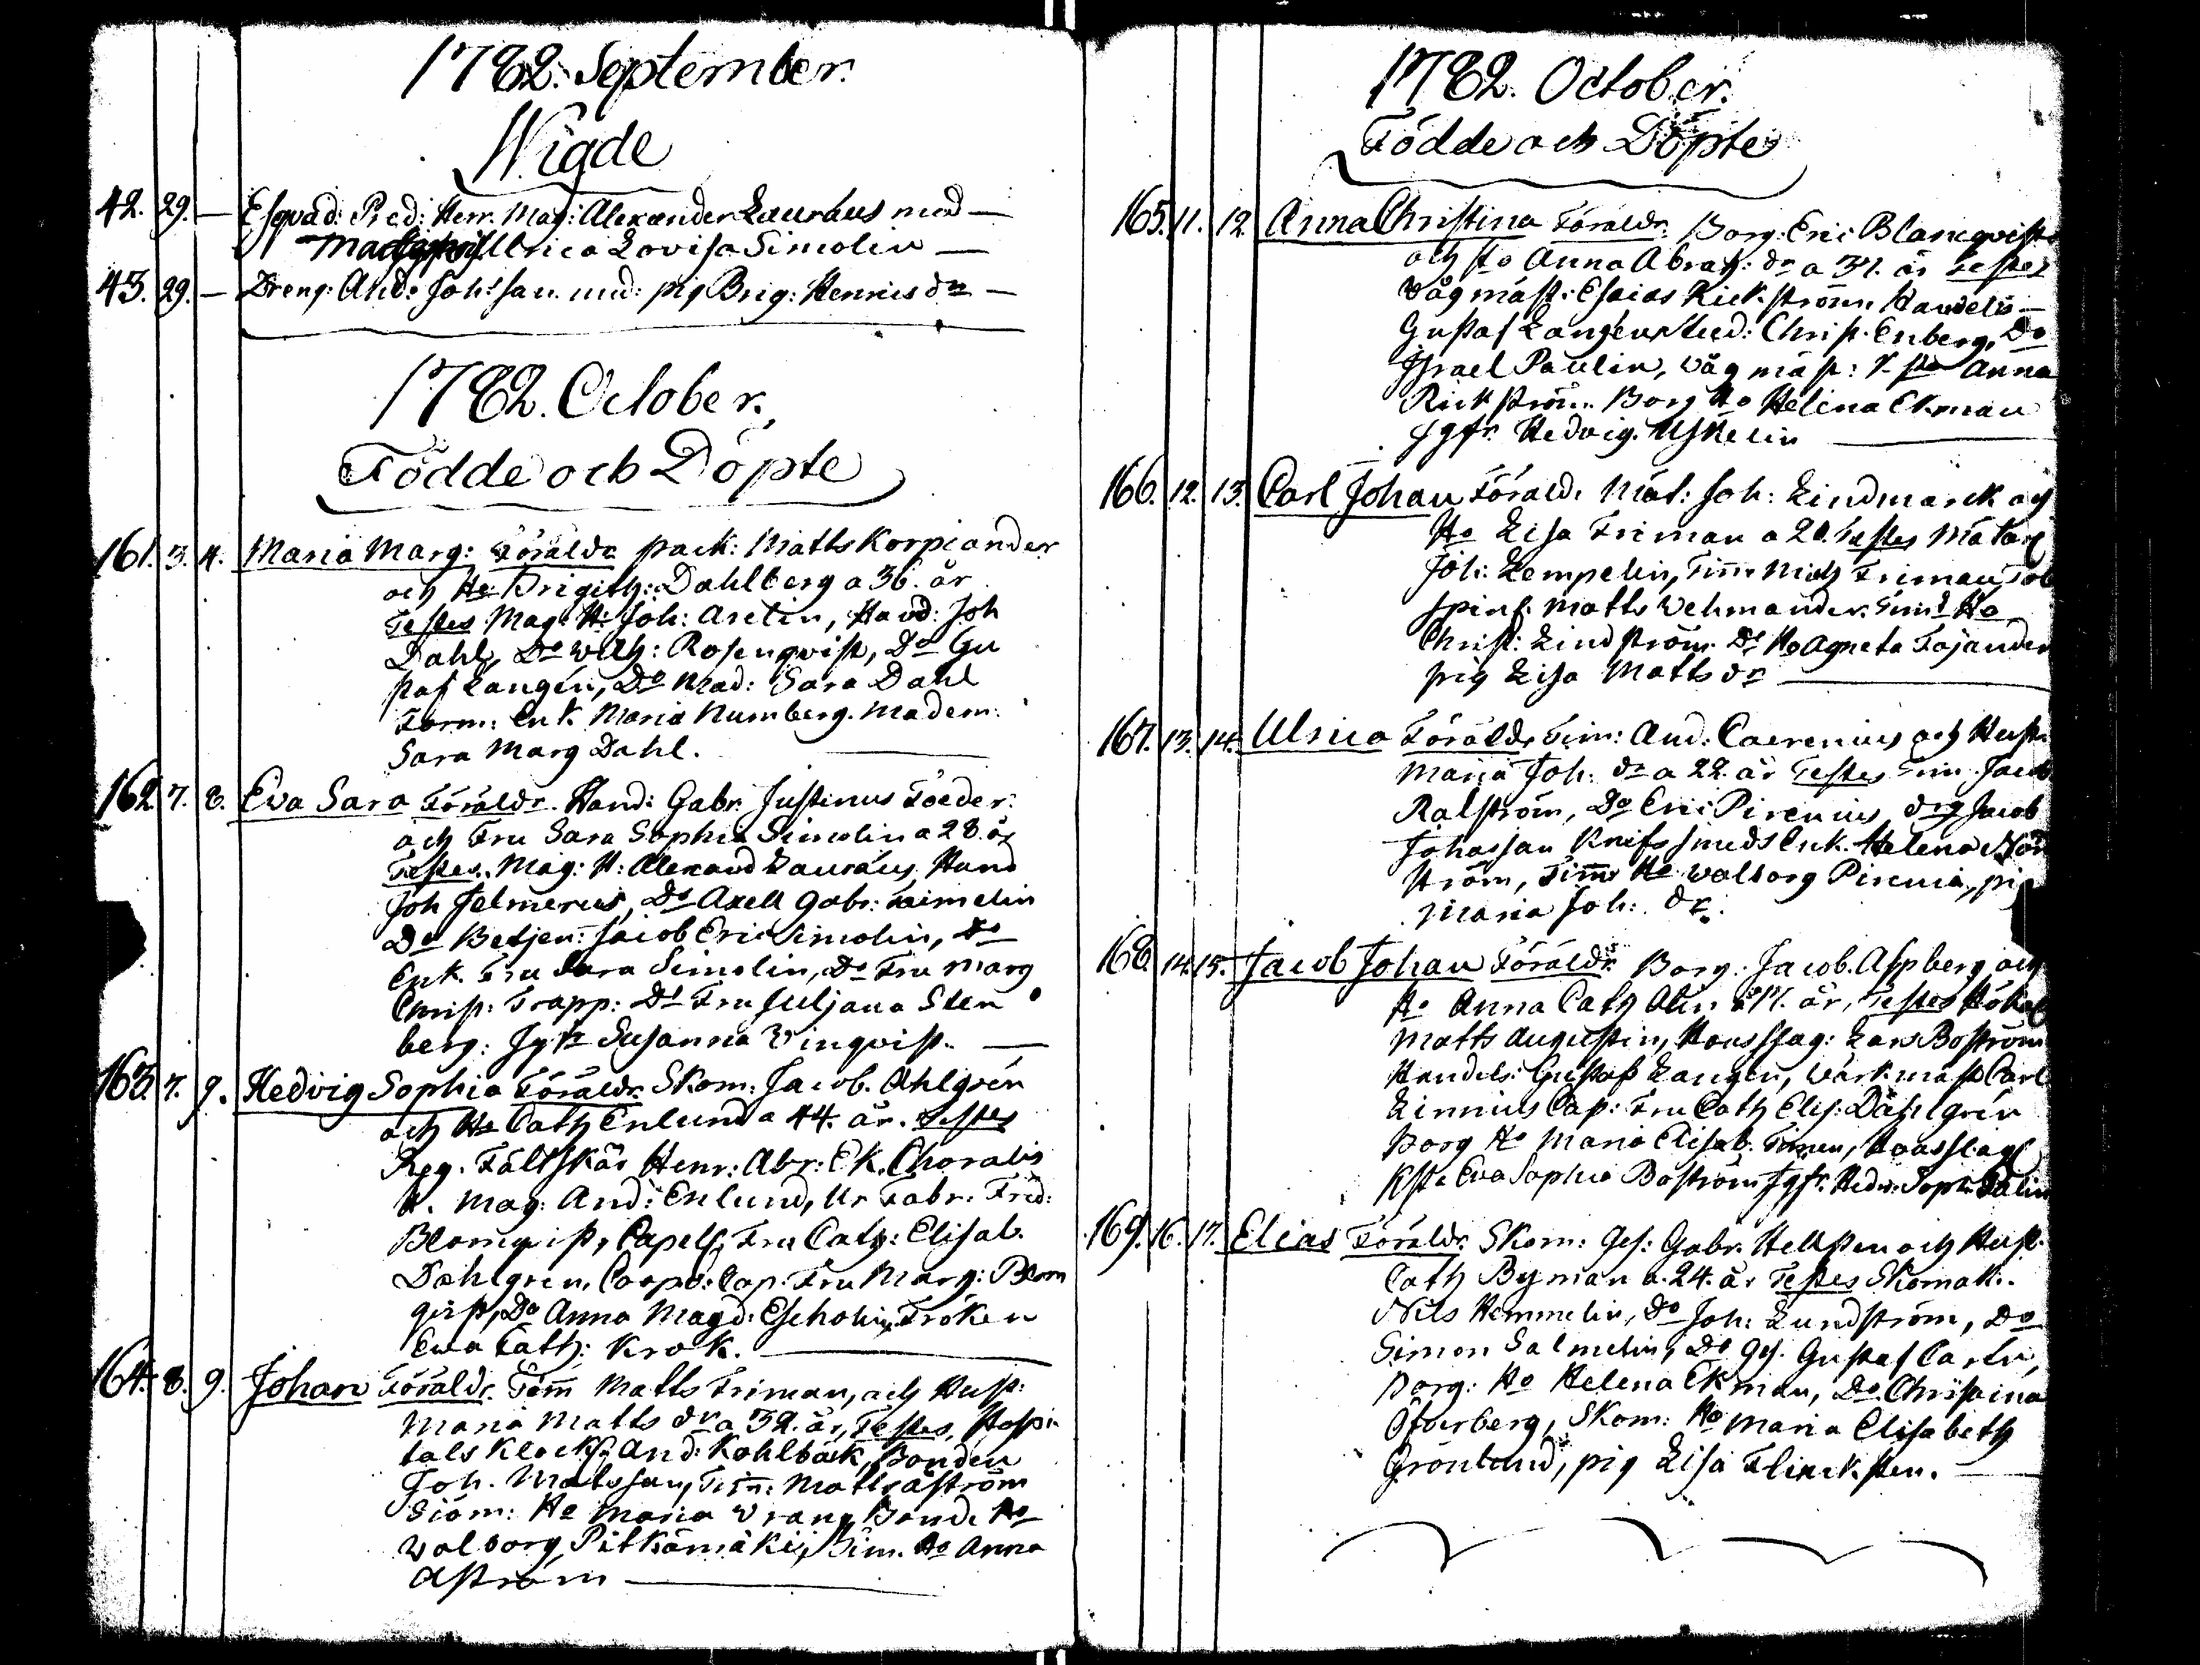 1782. September.
Wigde
42. 29. — Esquad: Pred: Herr. Mag: Alexander Lauræus med —
Ulrica Lovisa Simolin —
43. 29. — Dreng: And: Joh:ssan. med: pig Brig: Henrics dr —
1782. October.
Födde och Döpte
161. 3. 4. Maria Marg: Föräldr pack: Matts Korpiander
och H:o Brigith: Dahlberg a 36. år
Testes Mag: H: Joh: Aretin, Hand: Joh
Dahl, D:o Wilh: Rosenqvist, D:o Gu
staf Langén, D:o Mad: Sara Dahl
Enk. Maria Numberg. Madem:
Sara Marg Dahl.
162 7. 8. Eva Sara Föräldr. Hand: Gabr. Justinus Foeder:
och Fru Sara Sophia Simolin a 28. år
Testes. Mag: H: Alexand Lauræus, Hand
Joh Jelmerus, D:o Axell Gabr:
D:o Betjen: Jacob Eric Simolin, D:o
Enk. Fru Sara Simolin, D:o Fru Marg
Christ: Trapp: D:o Fru Juljana Sten
berg: Jgfr Susanna Winqvist. —
163. 7. 9. Hedvig Sophia Föräldr. Skom: Jacob. Ahlgrén
och H:o Cath Enlund a 44. år. Testes
Reg. Fältskär Henr: Abr: Ek. Choralis
H. Mag: And: Enlund, Ur Fabr. Fred:
Blomqvist, Capels, Fru Cath: Elisab.
Dahlgren, Coopv: Cap: Fru Marg: Blom
qvist, D:o Anna Magd: Escholin, Fröken
Ewa Cath: Krok. —
164. 8. 9. Johan Föräldr. Tim Matts Friman, och Hust:
Maria Matts dr a 32. år, Testes, Hospi
tals Klock: And: Kohlbäck, Bonden
Joh. Matssan, Tim: Matts Åström
Siöm: H:o Maria Wrang Bond. H:o
Walborg Pitkämäki, Tim. H:o Anna
Åström —
1782. October.
Födde och Döpte
165. 11. 12. Anna Christina Föräldr. Borg: Eric Blancqvist
och H:o Anna Abrah: dr a 37. år Testes
Vågmäst: Esaias Rickström, Handels —
Gustaf Langen, Stud: Christ. Enberg, D:o
Israel Paulin, vågmäst: Anna
Rickström. Borg H:o Helina Ekman
Jgfr. Hedvig.
166. 12. 13. Carl Johan Föräld. Mät: Joh: Lindmarck och
H:o Lisa Friman a 28. Testes Mätar
Joh: Lempelin, Tim: Mich Friman, Tob
spin: Matts Wehmander. Tim: H:o
Christ: Lindström D:o H:o Agneta Fajander
pig Lisa Matts dr —
167. 13. 14. Ulrica Föräldr, Tim: And: Caerenius och Hust
Maria Joh: dr a 22. år Testes Tim: Jacob
Ralström, D:o Eric Pirenius, drg Jacob
Johassan Knifssmeds Enk. Helena
ström, Tim: H:o Walborg Pirenia, pig
Maria Joh: dr.
168. 14. 15. Jacob Johan Föräldr: Borg: Jacob. Asp­berg och
H:o Anna Cath Alin a 37. år, Testes
Matts Augustin, Hattslag: Lars Boström
Handels: Gustaf Langén, Wärkmäst Carl
Linnius Cap: Fru Cath Elis: Dahlgrén
Borg H:o Maria Elisab. Hattslag
Eva Sophia Boström Jgfr. Hedv: Soph:
169. 16. 17. Elias Föräldr. Skom: Ges: Gabr. Hellsten och Hust.
Cath Byman a. 24. år Testes Skomak.
Nils Hemmelin, D:o Joh: Lundström, D:o
Simon Salmelin, D:o Ges. Gustaf
Borg: H:o Helena Ekman, D:o Christina
Österberg, Skom: H:o Maria Elisabeth
Grönlund, pig Lisa Flinck­sten. —